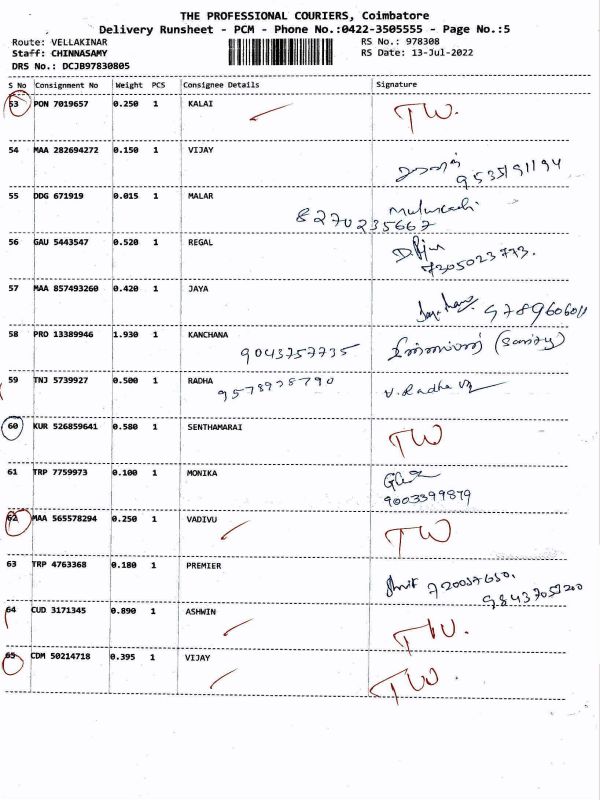 THE PROFESSIONAL COURIERS, Coimbatore
Delivery Runsheet - PCM - Phone No.:0422-3505555 - Page No.:5
Route: VELLAKINAR RS No.: 978308
Staff: CHINNASAMY RS Date: 13-Jul-2022
DRS No.: DCJB97830805
S No Consignment No Weight PCS Consignee Details Signature
53 PON 7019657 0.250 1 KALAI TW.
54 MAA 282694272 0.150 1 VIJAY
9535191194
55 DDG 671919 0.015 1 MALAR
8270235667
56 GAU 5443547 0.520 1 REGAL
7305023773.
57 MAA 857493260 0.420 1 JAYA
9789606011
58 PRO 13389946 1.930 1 KANCHANA
9043757735
59 TNJ 5739927 0.500 1 RADHA V. Radha
9578978790
60 KUR 526859641 0.580 1 SENTHAMARAI TW
61 TRP 7759973 0.100 1 MONIKA
9003399879
62 MAA 565578294 0.250 1 VADIVU TW
63 TRP 4763368 0.180 1 PREMIER
64 CUD 3171345 0.890 1 ASHWIN TW.
65 CDM 50214718 0.395 1 VIJAY TW.